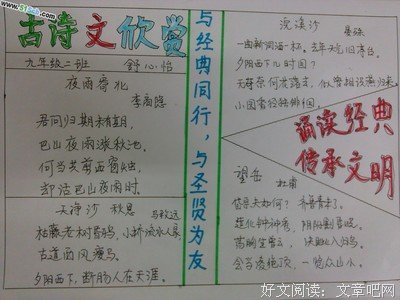 古诗文欣赏
九年级二班 舒心怡
夜雨寄北
李商隐
君问归期未有期,
巴山夜雨涨秋池。
何当共剪西窗烛,
却话巴山夜雨时。
天净沙 秋思
马致远
枯藤老树昏鸦,小桥流水人家
古道西风瘦马,
夕阳西下,断肠人在天涯。
与经典同行,与圣贤为友
浣溪沙
晏殊
一曲新词酒一杯。去年天气旧亭台。
夕阳西下几时回?
无可奈何花落去,似曾相识燕归来。
小园香径独徘徊。
诵读经典
传承文明
望岳 杜甫
岱宗夫如何?齐鲁青未了。
造化钟神秀,阴阳割昏晓。
荡胸生曾云,决眦入归鸟。
会当凌绝顶,一览众山小。
好文阅读:文章吧网